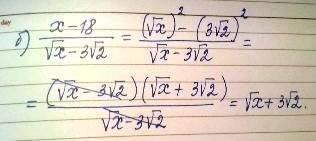 day
б) \frac{x-18}{\sqrt{x}-3\sqrt{2}} = \frac{(\sqrt{x})^2-(3\sqrt{2})^2}{\sqrt{x}-3\sqrt{2}} =
= \frac{(\sqrt{x}-3\sqrt{2})(\sqrt{x}+3\sqrt{2})}{\sqrt{x}-3\sqrt{2}} = \sqrt{x}+3\sqrt{2}.